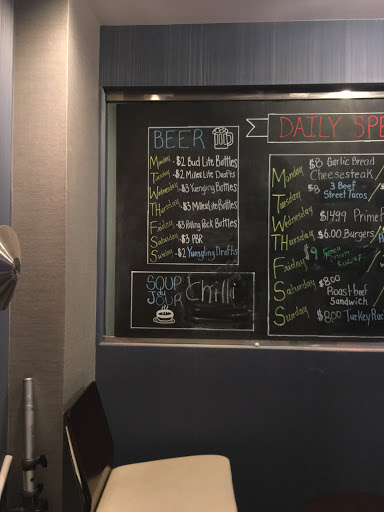 BEER
Monday - $2 Bud Lite Bottles
Tuesday - $2 Miller Lite Drafts
Wednesday - $3 Yuengling Bottles
THursday - $3 Miller Lite Bottles
Friday - $3 Rolling Rock Bottles
Saturday - $3 PBR
Sunday - $2 Yuengling Drafts
SOUP
du
JOUR
Chilli
DAILY SPE
Monday $8 Garlic Bread
Cheesesteak
Tuesday $8 3 Beef
Street Tacos
Wednesday $1499 Prime
Thursday $6.00 Burgers
Friday $9
Saturday $8.00
Roast beef
Sandwich
Sunday $8.00 Turkey